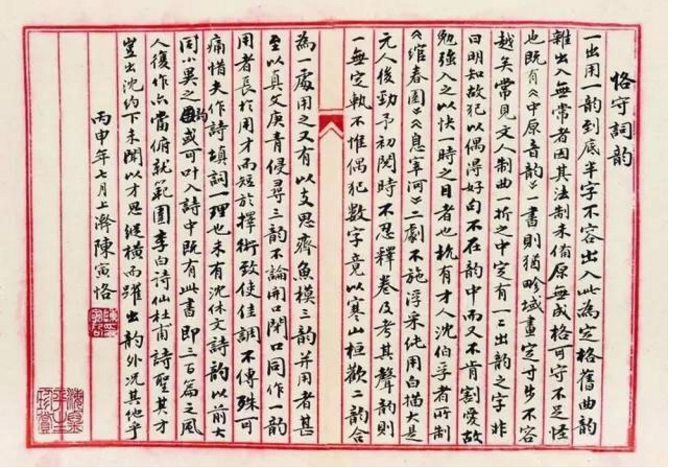 恪守詞韻
一出用一韻到底半字不容出入此為定格舊曲韻
雜出入無常者因其法制未備原無成格可守不足怪
也既有《中原音韻》一書則猶畛域畫定寸步不容
越矣常見文人制曲一折之中定有一二出韻之字非
曰明知故犯以偶得好句不在韻中而又不肯割愛故
勉強入之以快一時之目者也杭有才人沈伯孚者所制
《綰春園》《息宰河》二劇不施浮采純用白描大是
元人後勁予初閱時不忍釋卷及考其聲韻則
一無定軌不惟偶犯數字竟以寒山桓歡二韻合
為一處用之又有以支思齊魚模三韻并用者甚
至以真文庚青侵尋三韻不論開口閉口同作一韻
用者長於用才而短於擇術致使佳調不傳殊可
痛惜夫作詩填詞一理也未有沈休文詩韻以前大
同小異之韻或可叶入詩中既有此書即三百篇之風
人復作亦當俯就範圍李白詩仙杜甫詩聖其才
豈出沈約下未聞以才思縱橫而躍出韻外況其他乎
丙申年七月上澣陳寅恪